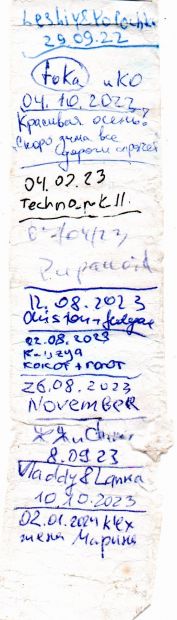 Leshiy & Polochka
29.09.22
Toka и КО
04.10.2022
Красивая осень!
Скоро зима все
дороги спрячет
04.02.23
Technomk II.
07/04/23
Zupanoid
12.08.2023
22.08.2023
кокот + полот
26.08.2023
NOVEMBER
8.09.23
Vladdy & Lanka
10.10.2023
02.01.2024 klex
жена Марина